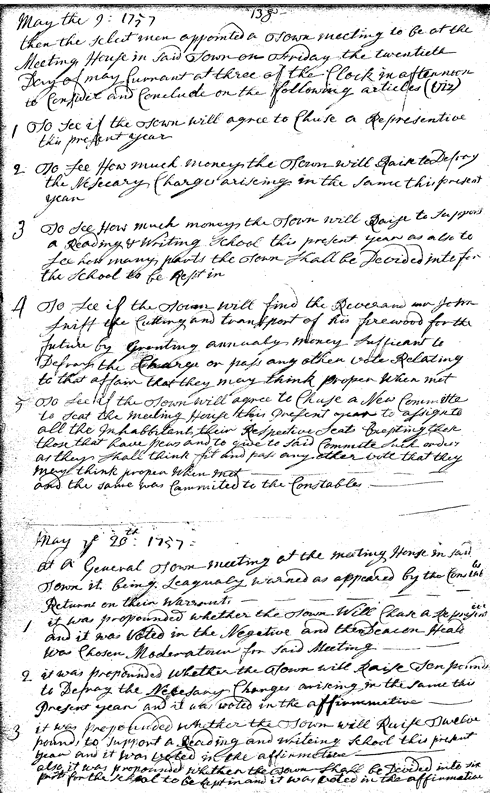 138
May the 9: 1757
then the select men appointed a Town meeting to be at the
Meeting House in said Town on Friday the twentieth
Day of may Currant at three of the Clock in afternoon
to Consider and Conclude on the following articles (viz)
1 To See if the Town will agree to Chuse a Representive
this present year
2 To See How much money the Town will Raise to Defray
the Nesecary Charges arising in the same this present
year
3 To See How much money the Town will Raise to Support
a Reading & Writing School this present year as also to
see how many parts the Town Shall be Devided into for
the School to be Kept in
4 To See if the Town will find the Reverand mr John
Swift the Cutting and transport of his firewood for the
future by Granting annualy money Sufficant to
Defray the Charge or pass any other vote Relating
to that affair that they may think proper When met
5 To See if the Town will agree to Chuse a New Committe
to Seat the meeting House this Present year to assign to
all the Inhabbitent their Respective Seats Exepting those
those that have pews and to give to said Commete Such orders
as they Shall think fit and pass any other vote that they
may think proper When met
and the same was Cammited to the Constable
May ye 20th: 1757:
at a General Town meeting at the meeting House in said
Town it being Leagualy warned as appeared by the Constables
Returns on their Warrant
1 it was propounded whether the Town Will Chuse a Representive
and it was voted in the Negative and then Deacon Heald
was Chosen Moderatour for said Meeting
2 it was propounded whether the Town will Raise Ten pounds
to Defray the Necesary Charges arising in the same this
Present year and it was voted in the affirmmetive
3 it was propounded whether the Town will Raise Twelve
pounds to Support a Reading and writeing School this present
year and it was voted in the affirmetive
also it was propounded whether the Town Shall be Devided into six
part for the School to be kept in and it was voted in the affirmative